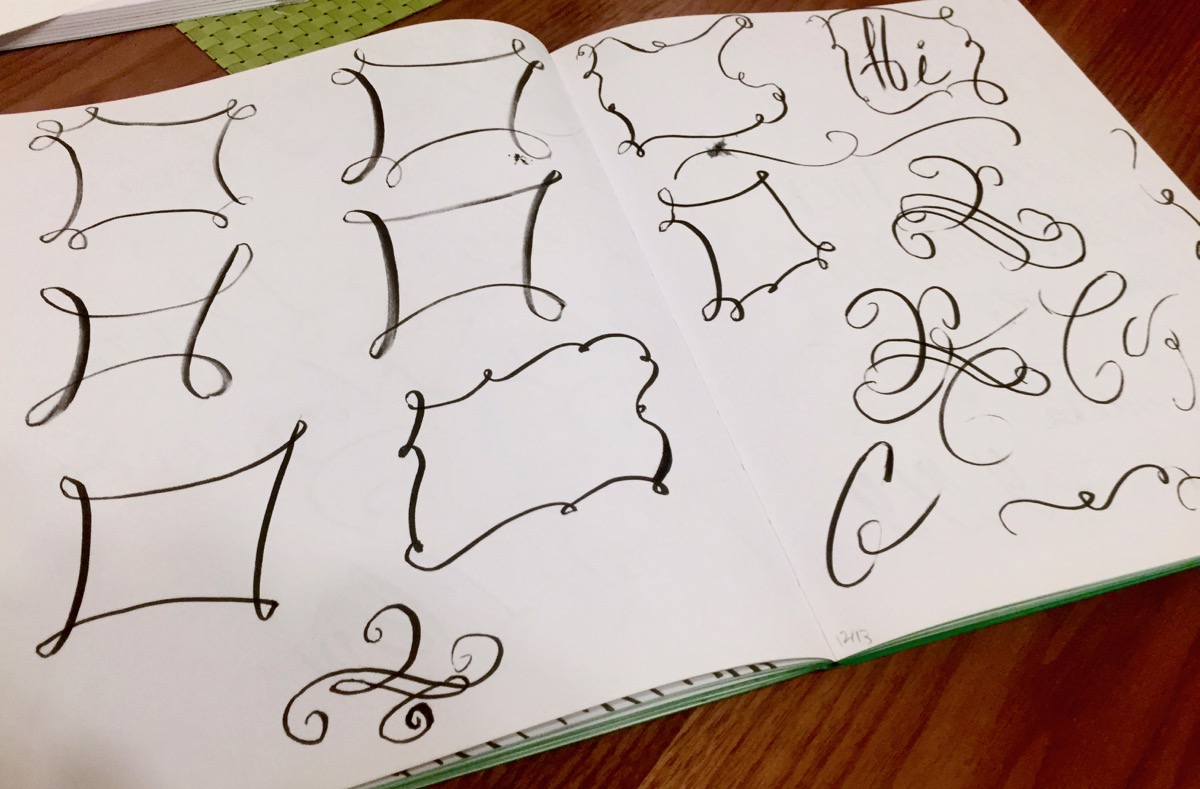 Hi
12/13